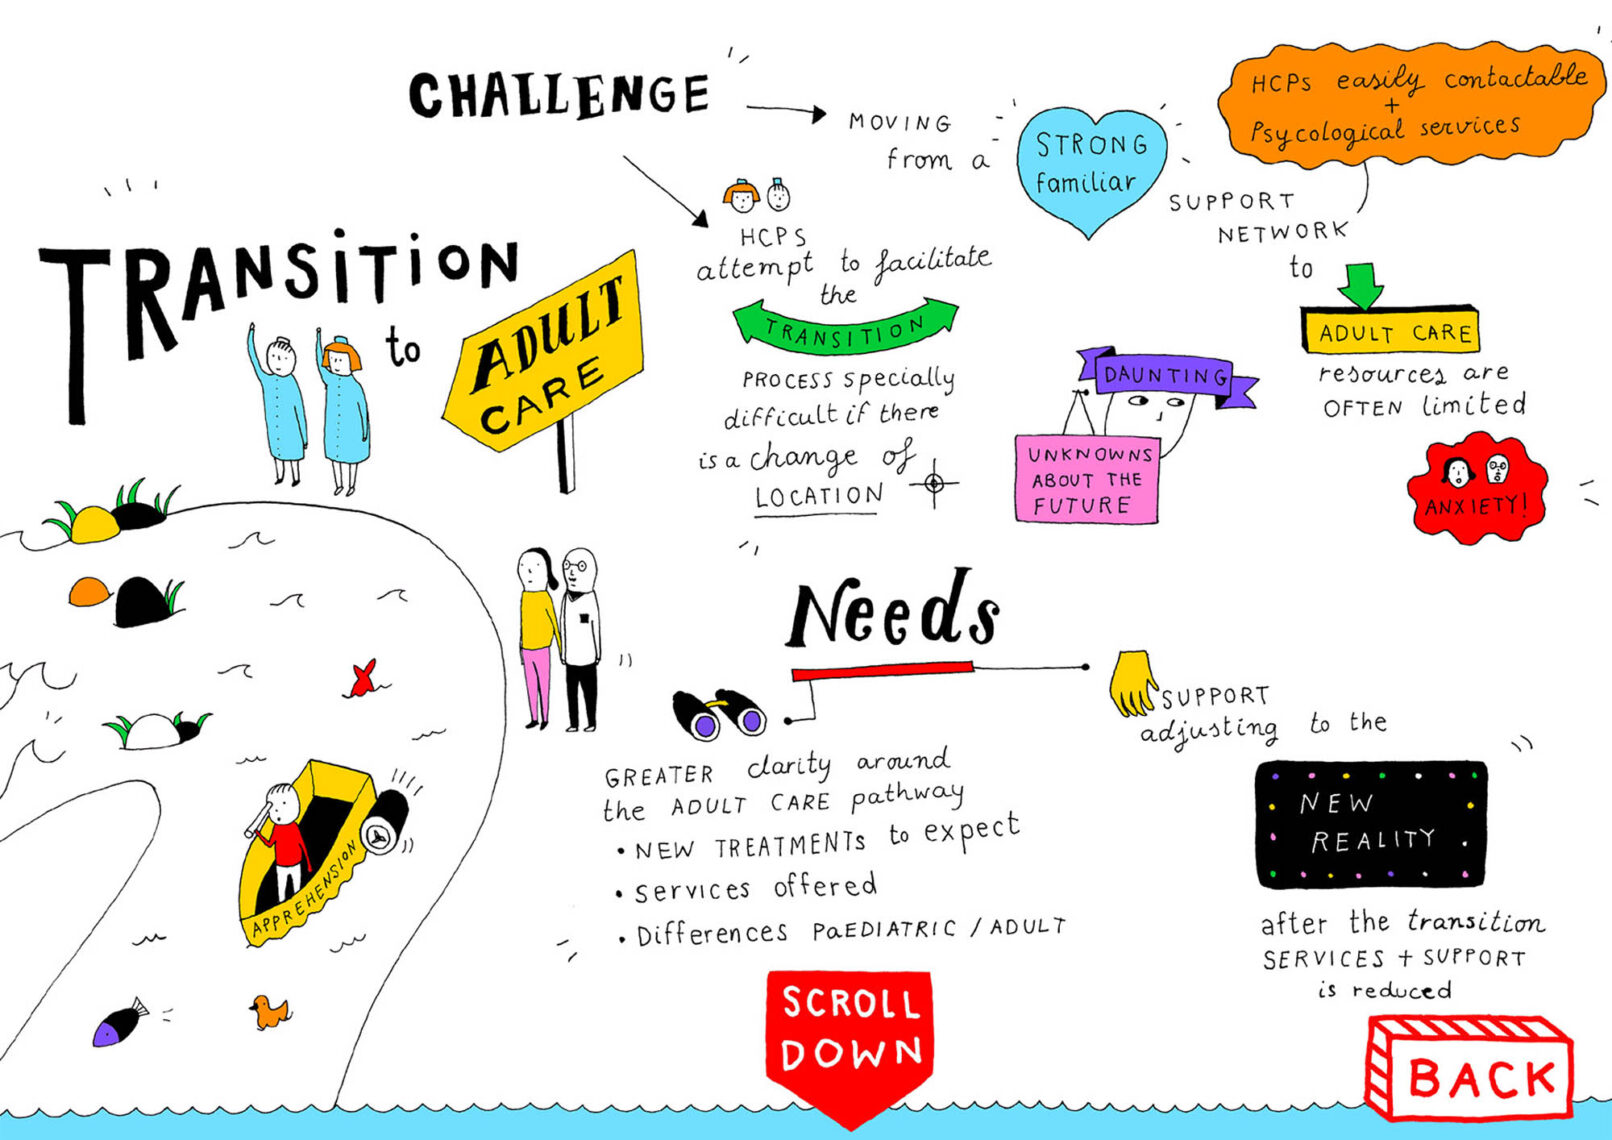 TRANSITION
to
ADULT
CARE
CHALLENGE
MOVING
from a
STRONG
familiar
HCPs easily contactable
+
Psycological services
SUPPORT
NETWORK
to
ADULT CARE
resources are
OFTEN limited
ANXIETY!
HCPS
attempt to facilitate
the
TRANSITION
PROCESS specially
difficult if there
is a change of
LOCATION
DAUNTING
UNKNOWNS
ABOUT THE
FUTURE
Needs
GREATER clarity around
the ADULT CARE pathway
• NEW TREATMENTs to expect
• Services offered
• Differences PaEDIATRIC / ADULT
SUPPORT
adjusting to the
NEW
REALITY
after the transition
SERVICES + SUPPORT
is reduced
APPREHENSION
SCROLL
DOWN
BACK